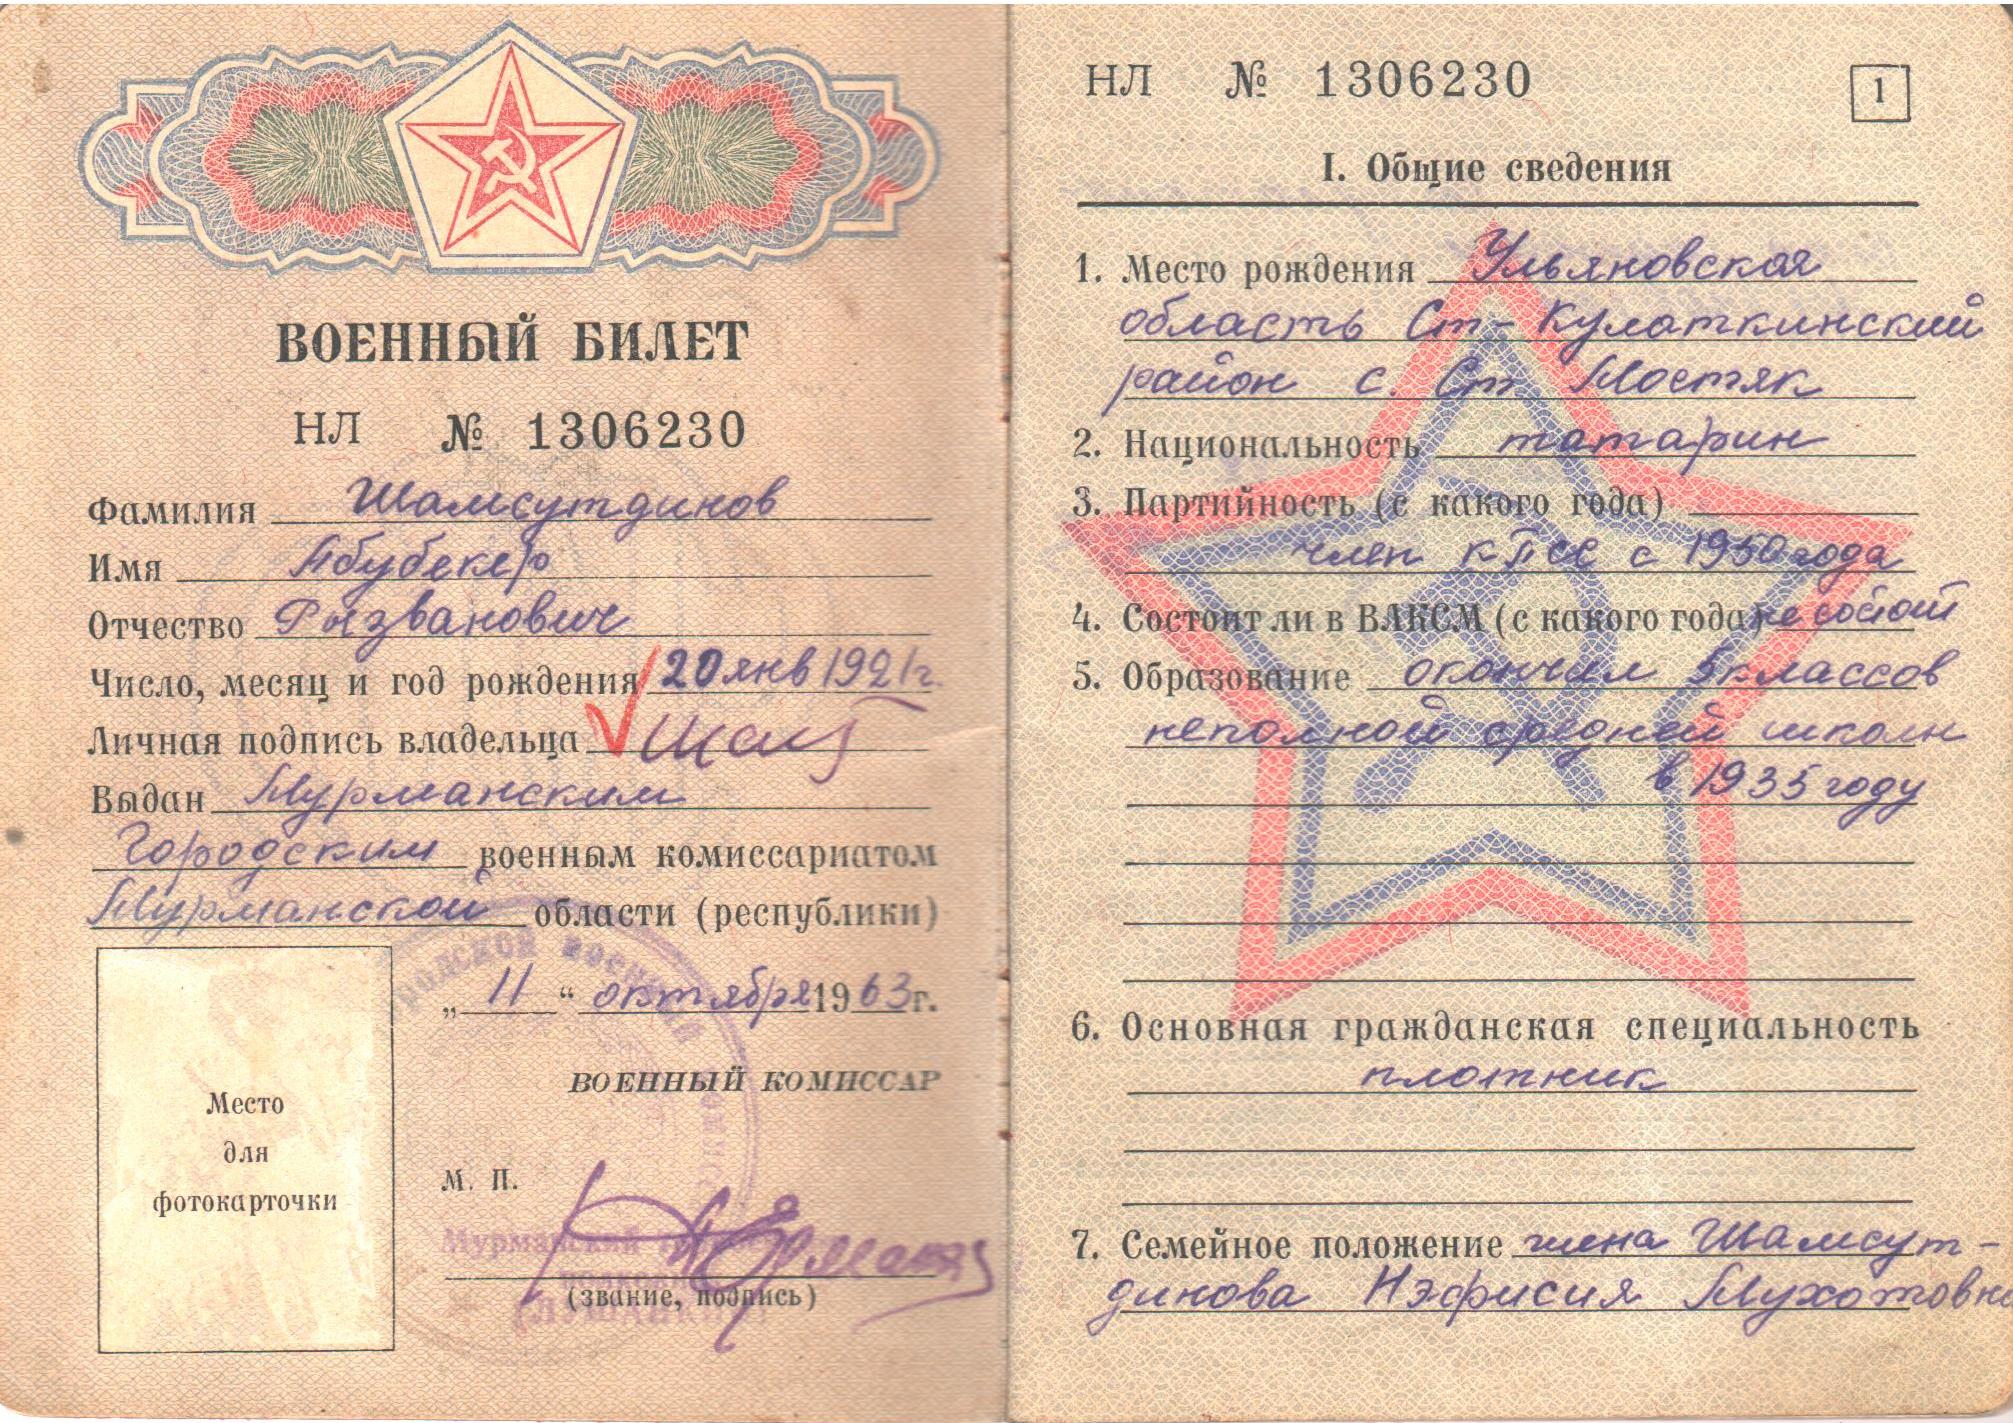 ВОЕННЫЙ БИЛЕТ
НЛ № 1306230
Фамилия Шамсутдинов
Имя Абубекер
Отчество Рызванович
Число, месяц и год рождения 20 янв 1921 г.
Личная подпись владельца Шам
Выдан Мурманским
Городским военным комиссариатом
Мурманской области (республики)
„ 11 “ октября 1963 г.
ВОЕННЫЙ КОМИССАР
М. П.
(звание, подпись)
Место
для
фотокарточки
НЛ № 1306230
1
I. Общие сведения
1. Место рождения Ульяновская
область Ст-Кулаткинский
район с. Ст Мостяк
2. Национальность татарин
3. Партийность (с какого года)
член КПСС с 1950 года
4. Состоит ли в ВЛКСМ (с какого года) не состоит
5. Образование окончил 5 классов
неполной средней школы
в 1935 году
6. Основная гражданская специальность
плотник
7. Семейное положение жена Шамсут-
динова Нэфисия Мухотовна